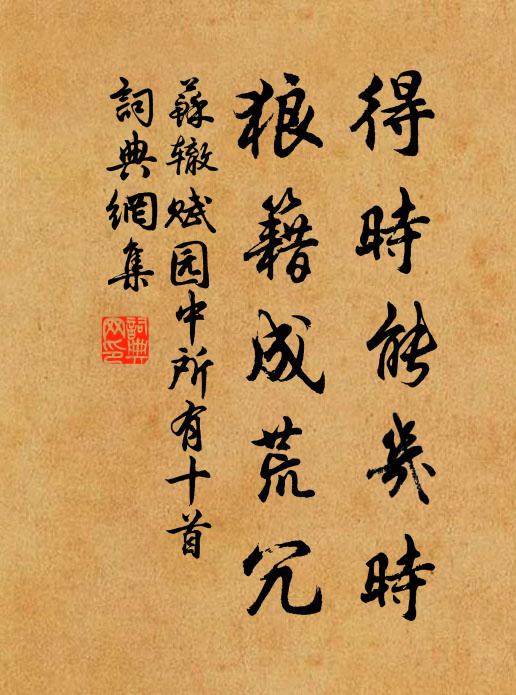 得時能幾時
狼籍成荒冗
蘇辙赋园中所有十首
詞典網集
詞典